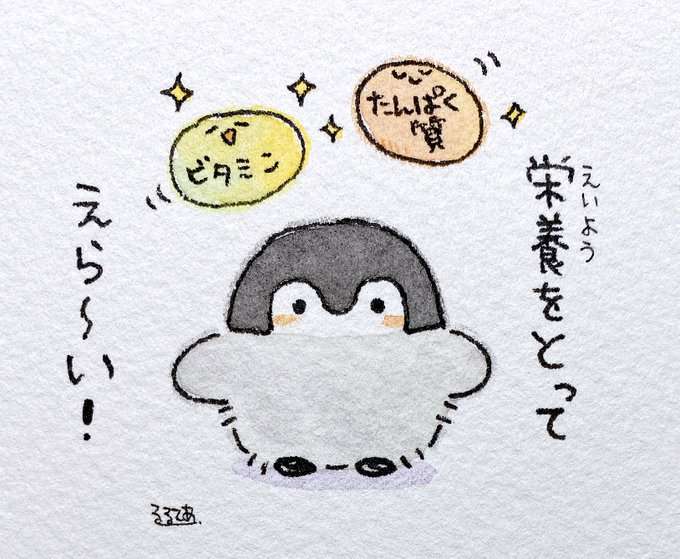 ビタミン
たんぱく
質
えいよう
栄養をとって
えら～い！
るるてあ.